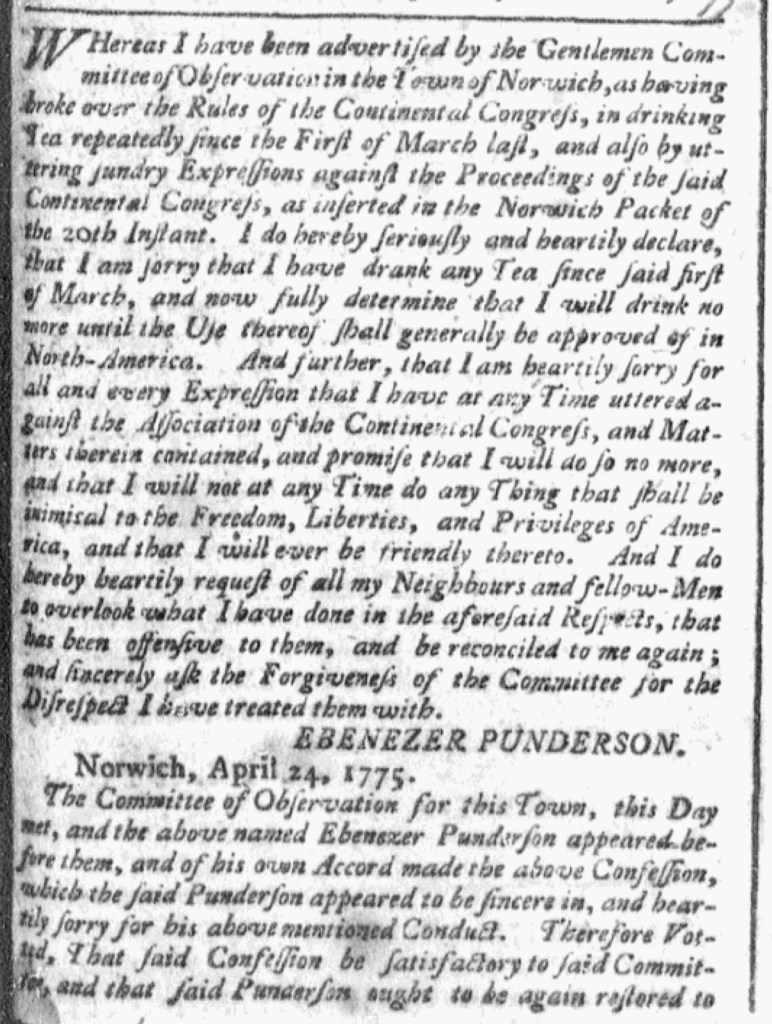 WHereas I have been advertiſed by the Gentlemen Com-
mittee of Obſervation in the Town of Norwich, as having
broke over the Rules of the Continental Congreſs, in drinking
Tea repeatedly ſince the Firſt of March laſt, and alſo by ut-
tering ſundry Expreſſions againſt the Proceedings of the ſaid
Continental Congreſs, as inſerted in the Norwich Packet of
the 20th Inſtant. I do hereby ſeriouſly and heartily declare,
that I am ſorry that I have drank any Tea ſince ſaid firſt
of March, and now fully determine that I will drink no
more until the Uſe thereof ſhall generally be approved of in
North-America. And further, that I am heartily ſorry for
all and every Expreſſion that I have at any Time uttered a-
gainſt the Aſſociation of the Continental Congreſs, and Mat-
ters therein contained, and promiſe that I will do ſo no more,
and that I will not at any Time do any Thing that ſhall be
inimical to the Freedom, Liberties, and Privileges of Ame-
rica, and that I will ever be friendly thereto. And I do
hereby heartily requeſt of all my Neighbours and fellow-Men
to overlook what I have done in the aforeſaid Reſpects, that
has been offenſive to them, and be reconciled to me again;
and ſincerely aſk the Forgiveneſs of the Committee for the
Diſreſpect I have treated them with.
EBENEZER PUNDERSON.
Norwich, April 24, 1775.
The Committee of Obſervation for this Town, this Day
met, and the above named Ebenezer Punderſon appeared be-
fore them, and of his own Accord made the above Confeſſion,
which the ſaid Punderſon appeared to be ſincere in, and hear-
tily ſorry for his above mentioned Conduct. Therefore Vot-
ed, That ſaid Confeſſion be ſatisfactory to ſaid Commit-
tee, and that ſaid Punderſon ought to be again reſtored to